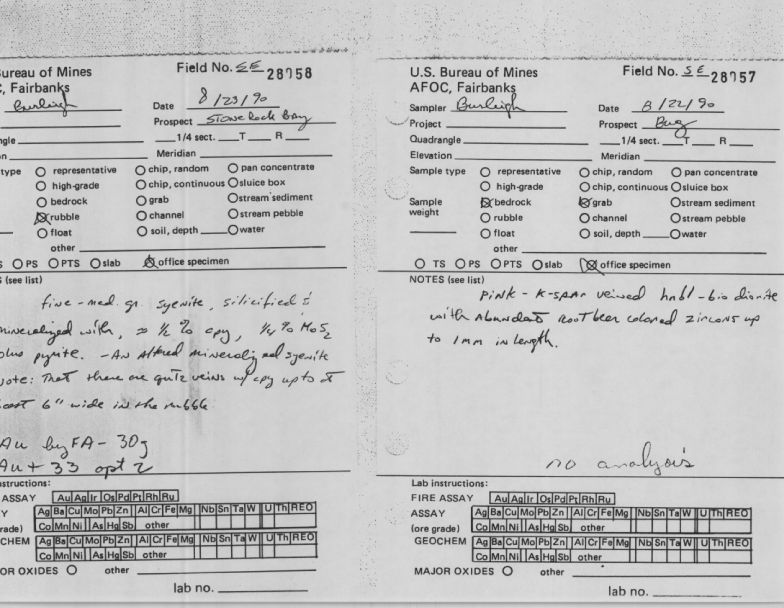 ureau of Mines
Field No. SE 28958
C, Fairbanks
Burleigh
Date 8/23/90
Prospect Stone Rock Bay
ngle
1/4 sect. T R
on
Meridian
type
representative
chip, random
pan concentrate
high-grade
chip, continuous
sluice box
bedrock
grab
stream sediment
rubble
channel
stream pebble
float
soil, depth
water
other
S PS PTS slab office specimen
S (see list)
fine - med. gr. syenite, silicified &
mineralized with, ≈ ½ % cpy, ¼ % MoS2
plus pyrite. - An altered mineralized syenite
note: That there are qutz veins w/ cpy up to at
least 6" wide in the rubble
Au by FA - 30g
Au + 33 opt 2
nstructions:
ASSAY Au Ag Ir Os Pd Pt Rh Ru
Y Ag Ba Cu Mo Pb Zn Al Cr Fe Mg Nb Sn Ta W U Th REO
rade) Co Mn Ni As Hg Sb other
CHEM Ag Ba Cu Mo Pb Zn Al Cr Fe Mg Nb Sn Ta W U Th REO
Co Mn Ni As Hg Sb other
OR OXIDES other
lab no.
U.S. Bureau of Mines
Field No. SE 28957
AFOC, Fairbanks
Sampler Burleigh
Date 8/22/90
Project
Prospect Bug
Quadrangle
1/4 sect. T R
Elevation
Meridian
Sample type
representative
chip, random
pan concentrate
high-grade
chip, continuous
sluice box
Sample weight
bedrock
grab
stream sediment
rubble
channel
stream pebble
float
soil, depth
water
other
TS PS PTS slab office specimen
NOTES (see list)
Pink - K-spar veined hnbl - bio diorite
with abundant root beer colored zircons up
to 1mm in length.
no analysis
Lab instructions:
FIRE ASSAY Au Ag Ir Os Pd Pt Rh Ru
ASSAY Ag Ba Cu Mo Pb Zn Al Cr Fe Mg Nb Sn Ta W U Th REO
(ore grade) Co Mn Ni As Hg Sb other
GEOCHEM Ag Ba Cu Mo Pb Zn Al Cr Fe Mg Nb Sn Ta W U Th REO
Co Mn Ni As Hg Sb other
MAJOR OXIDES other
lab no.